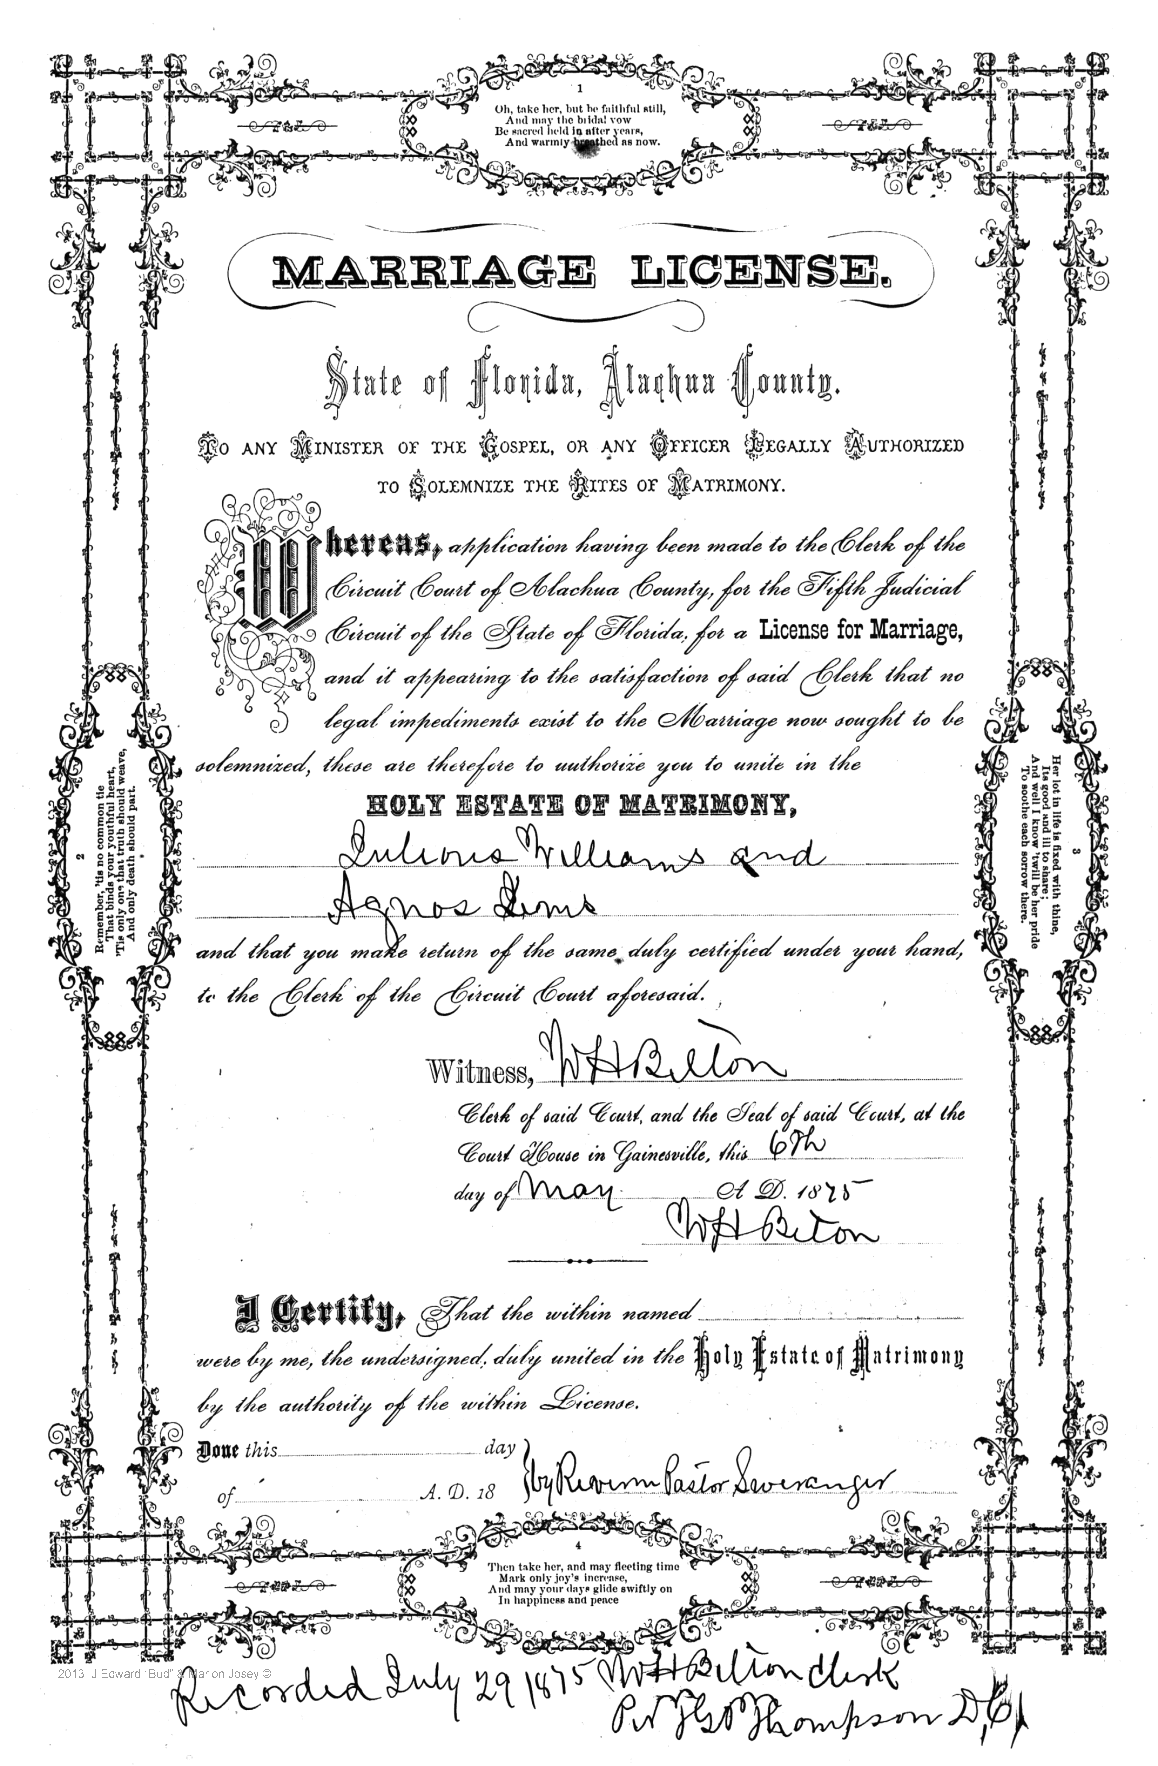 1
Oh, take her, but be faithful still,
And may the bridal vow
Be sacred held in after years,
And warmly breathed as now.
MARRIAGE LICENSE.
State of Florida, Alachua County.
TO ANY MINISTER OF THE GOSPEL, OR ANY OFFICER LEGALLY AUTHORIZED
TO SOLEMNIZE THE RITES OF MATRIMONY.
Whereas, application having been made to the Clerk of the
Circuit Court of Alachua County, for the Fifth Judicial
Circuit of the State of Florida, for a License for Marriage,
and it appearing to the satisfaction of said Clerk that no
legal impediments exist to the Marriage now sought to be
solemnized, these are therefore to authorize you to unite in the
HOLY ESTATE OF MATRIMONY,
Williams and
Agnos Sims
and that you make return of the same duly certified under your hand,
to the Clerk of the Circuit Court aforesaid.
Witness, W H Belton
Clerk of said Court, and the Seal of said Court, at the
Court House in Gainesville, this 6th
day of May A D. 1875
W H Belton
I Certify, That the within named
were by me, the undersigned, duly united in the Holy Estate of Matrimony
by the authority of the within License.
Done this day
of A. D. 18 by Pastor
2
Remember, 'tis no common tie
That binds your youthful heart,
'Tis only one that truth should weave,
And only death should part.
3
Her lot in life is fixed with thine,
Its good and ill to share;
And well I know 'twill be her pride
To soothe each sorrow there.
4
Then take her, and may fleeting time
Mark only joy's increase,
And may your days glide swiftly on
In happiness and peace
2013 J Edward "Bud" & Marion Josey ©
Recorded July 29 1875 W H Belton Clerk
Thompson D,C,